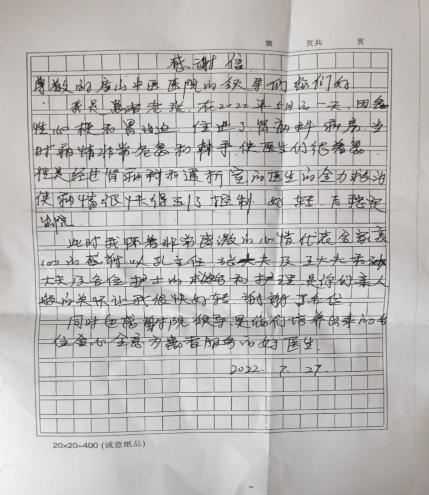 第 页共 页
感谢信
尊敬的 山中医医院的领导们你们好
我是患者老张,在2022年5月 一天,因急
性心梗和胃 住进了肾病科病房,当
时病情非常危急和棘手,使医生们很着急
但是经过肾病科和透析室的医生的全力救治
使病情很快得到了控制 好转,后稳定
出院
此时我怀着非常感激的心情代表全家衷
心的感谢 孔主任 张大夫及王大夫和
大夫及各位护士的 和护理是你们亲人
般的关怀让我很快的好转 谢谢了各位
同时也感谢院领导 是你们培养出来的各
位全心全意为患者服务的好医生
2022.7.27.
20×20=400 (诚意纸品)